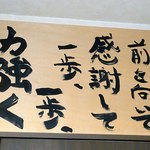 前を向いて
感謝して
一歩、一歩、
力強く